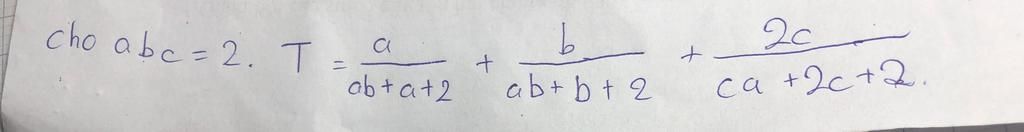 cho abc = 2. T = a/(ab+a+2) + b/(ab+b+2) + 2c/(ca+2c+2).